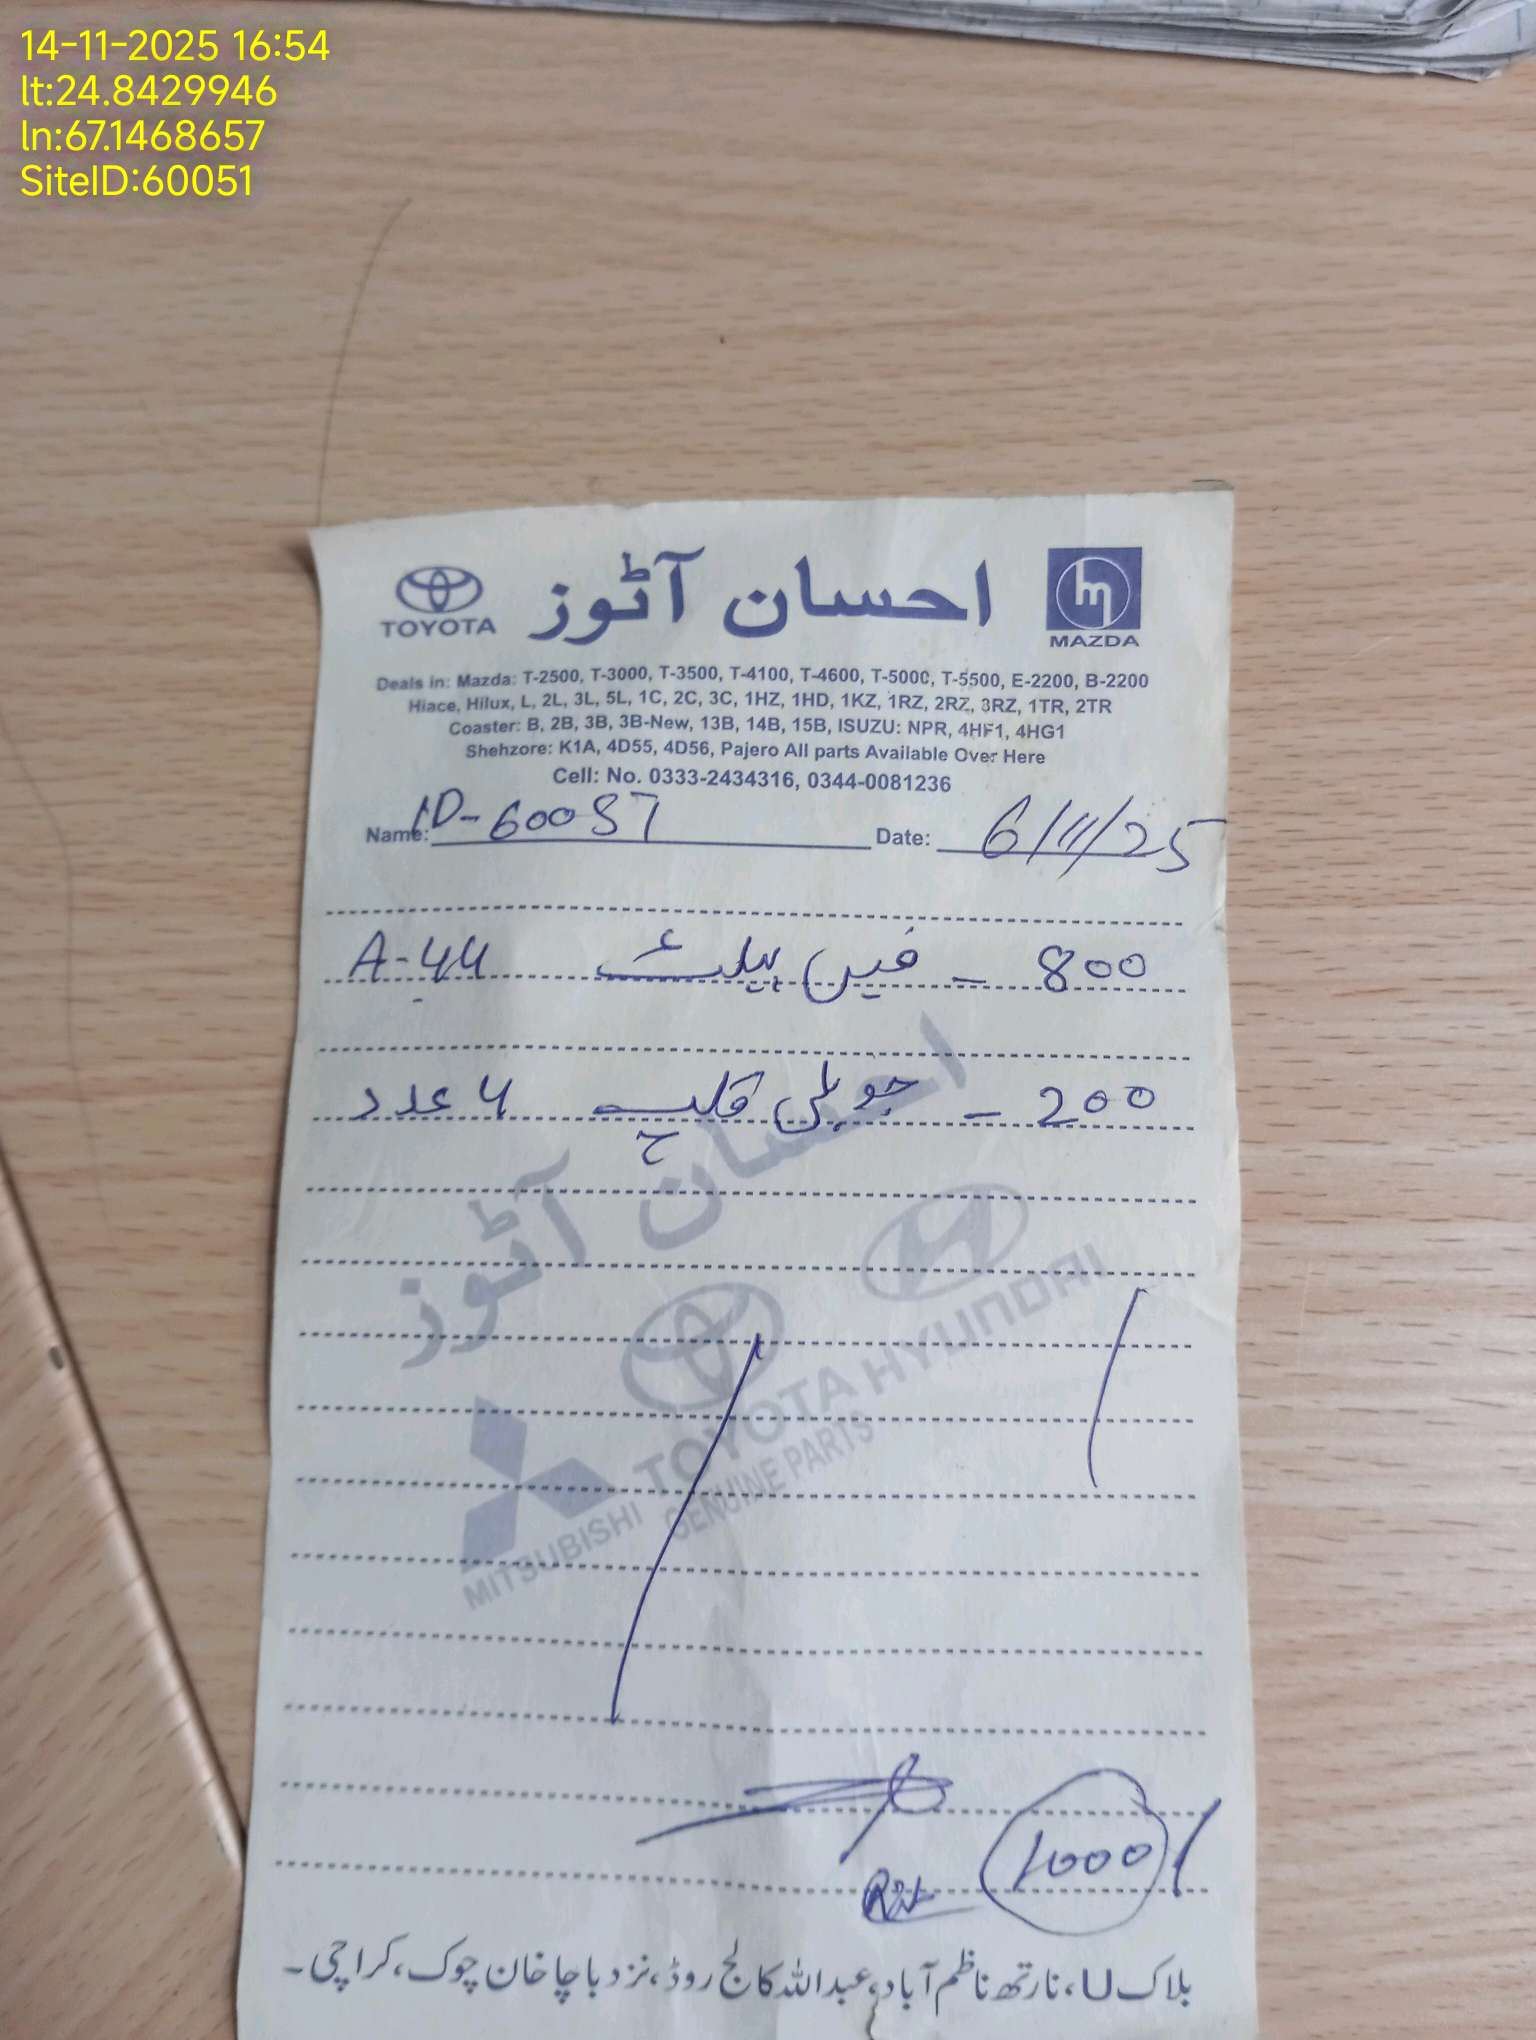 14-11-2025 16:54
lt:24.8429946
ln:67.1468657
SiteID:60051
TOYOTA احسان آٹوز MAZDA
Deals in: Mazda: T-2500, T-3000, T-3500, T-4100, T-4600, T-5000, T-5500, E-2200, B-2200
Hiace, Hilux, L, 2L, 3L, 5L, 1C, 2C, 3C, 1HZ, 1HD, 1KZ, 1RZ, 2RZ, 3RZ, 1TR, 2TR
Coaster: B, 2B, 3B, 3B-New, 13B, 14B, 15B, ISUZU: NPR, 4HF1, 4HG1
Shehzore: K1A, 4D55, 4D56, Pajero All parts Available Over Here
Cell: No. 0333-2434316, 0344-0081236
Name: ID-60051 Date: 6/11/25
A-44 فین بیلٹ - 800
جوبلی کلپ ۴ عدد - 200
احسان آٹوز
HYUNDAI
TOYOTA
GENUINE PARTS
MITSUBISHI
1000/
بلاک U، نارتھ ناظم آباد، عبداللہ کالج روڈ، نزد باچا خان چوک، کراچی۔